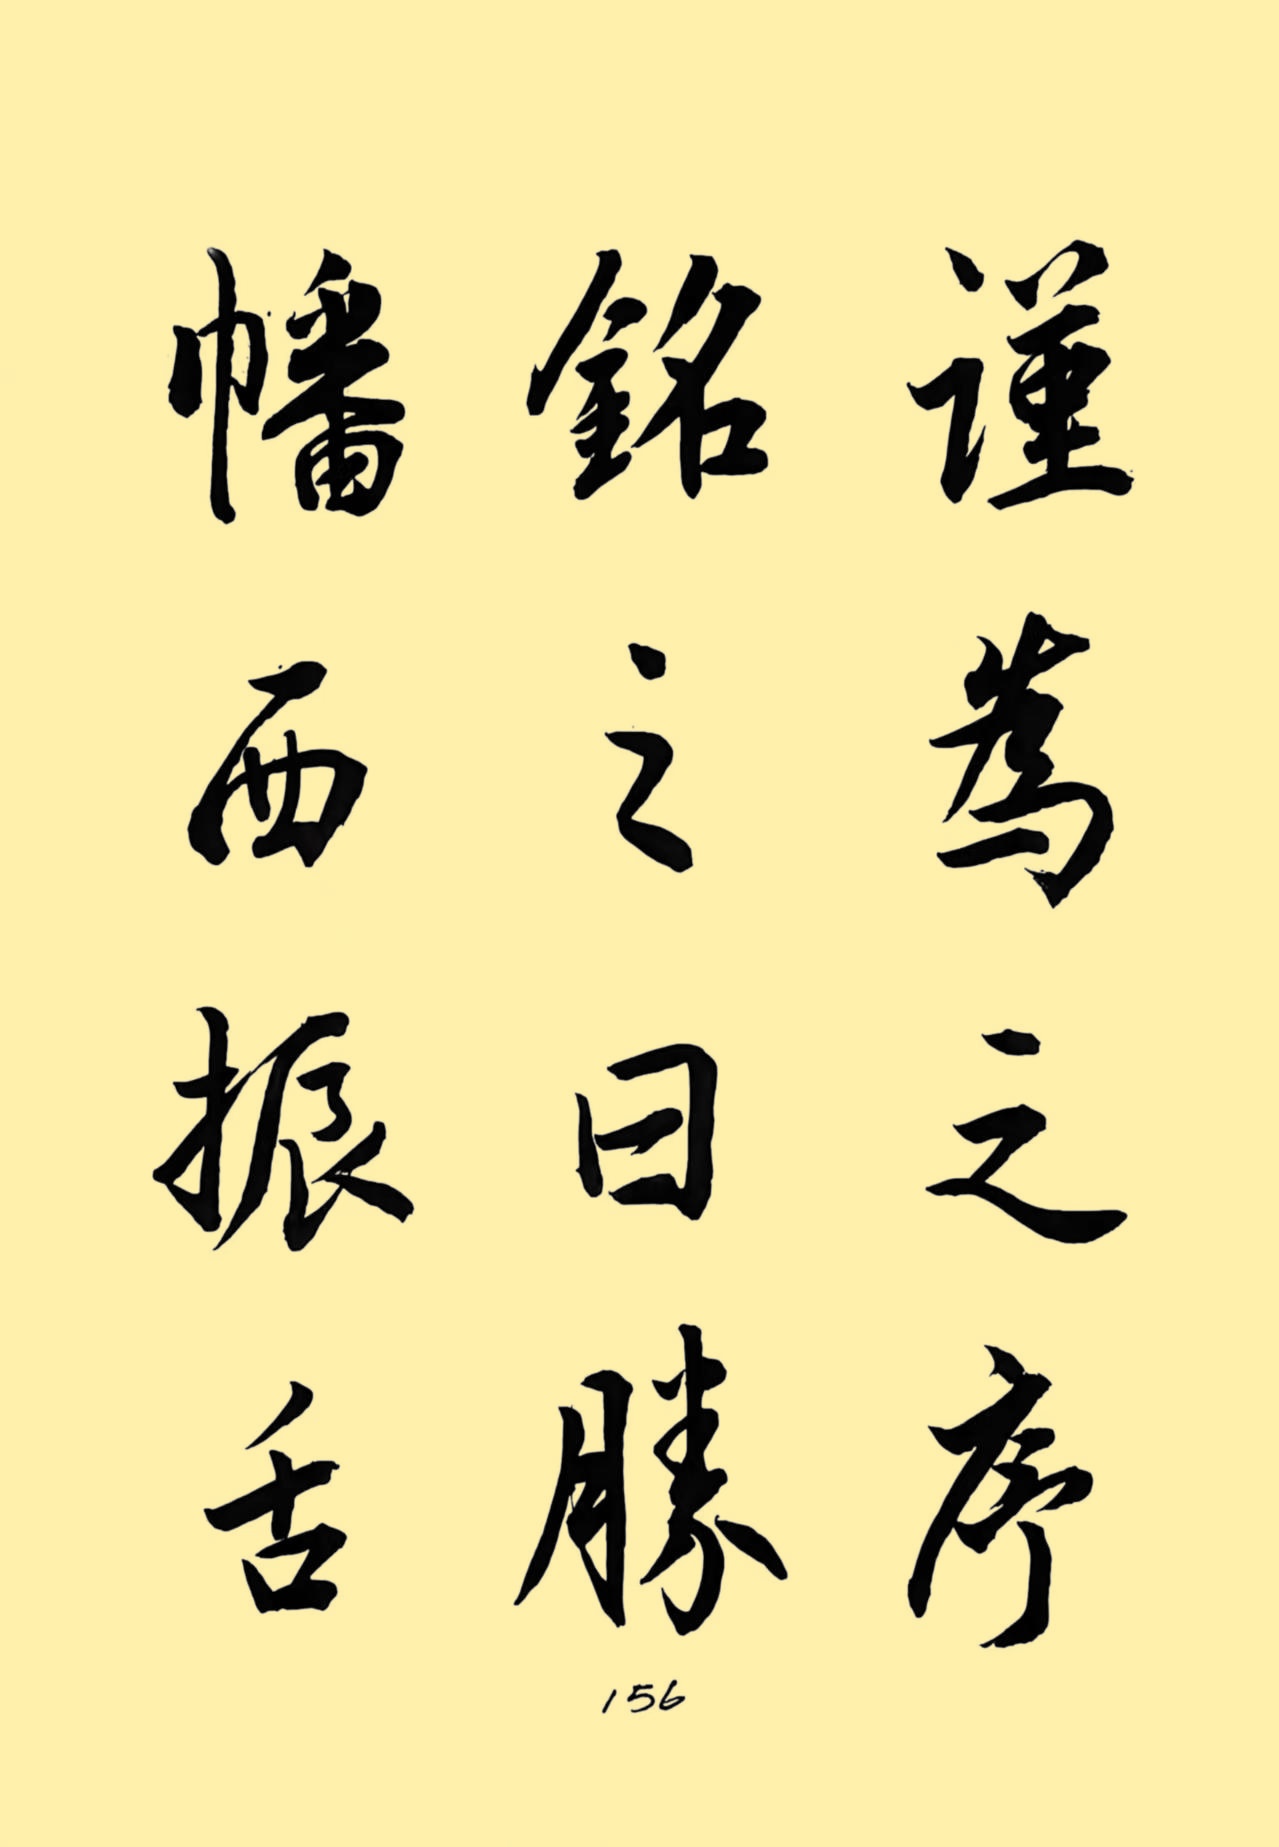 謹為之序
銘之曰勝
幡西振舌
156